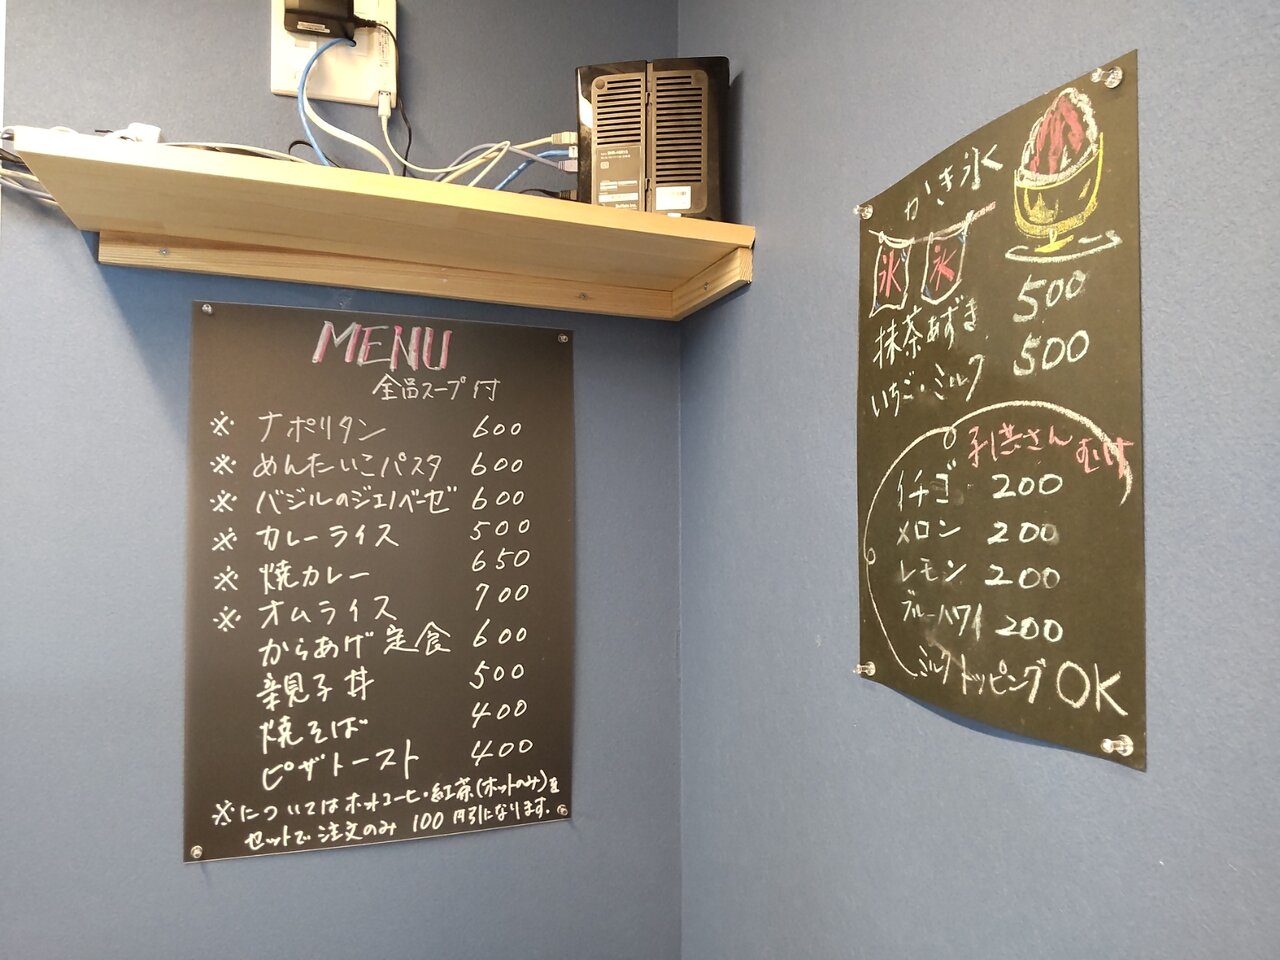 MENU
全品スープ付
※ ナポリタン 600
※ めんたいこパスタ 600
※ バジルのジェノベーゼ 600
※ カレーライス 500
※ 焼カレー 650
※ オムライス 700
からあげ定食 600
親子丼 500
焼そば 400
ピザトースト 400
※についてはホットコーヒー・紅茶(ホットのみ)を
セットで注文のみ 100円引になります.
かき氷
氷 氷
抹茶あずき 500
いちご・ミルク 500
子供さんむけ
イチゴ 200
メロン 200
レモン 200
ブルーハワイ 200
ミルクトッピングOK